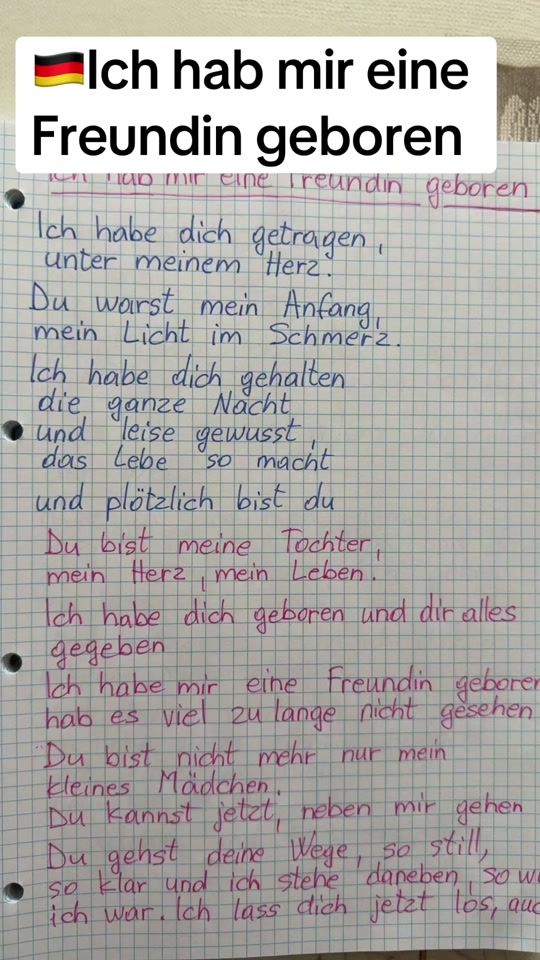 🇩🇪Ich hab mir eine
Freundin geboren
Ich hab mir eine Freundin geboren
Ich habe dich getragen,
unter meinem Herz.
Du warst mein Anfang,
mein Licht im Schmerz.
Ich habe dich gehalten
die ganze Nacht
und leise gewusst,
das Lebe so macht
und plötzlich bist du
Du bist meine Tochter,
mein Herz, mein Leben.
Ich habe dich geboren und dir alles
gegeben
Ich habe mir eine Freundin geboren
hab es viel zu lange nicht gesehen
Du bist nicht mehr nur mein
kleines Mädchen.
Du kannst jetzt, neben mir gehen
Du gehst deine Wege, so still,
so klar und ich stehe daneben, so
ich war. Ich lass dich jetzt los,